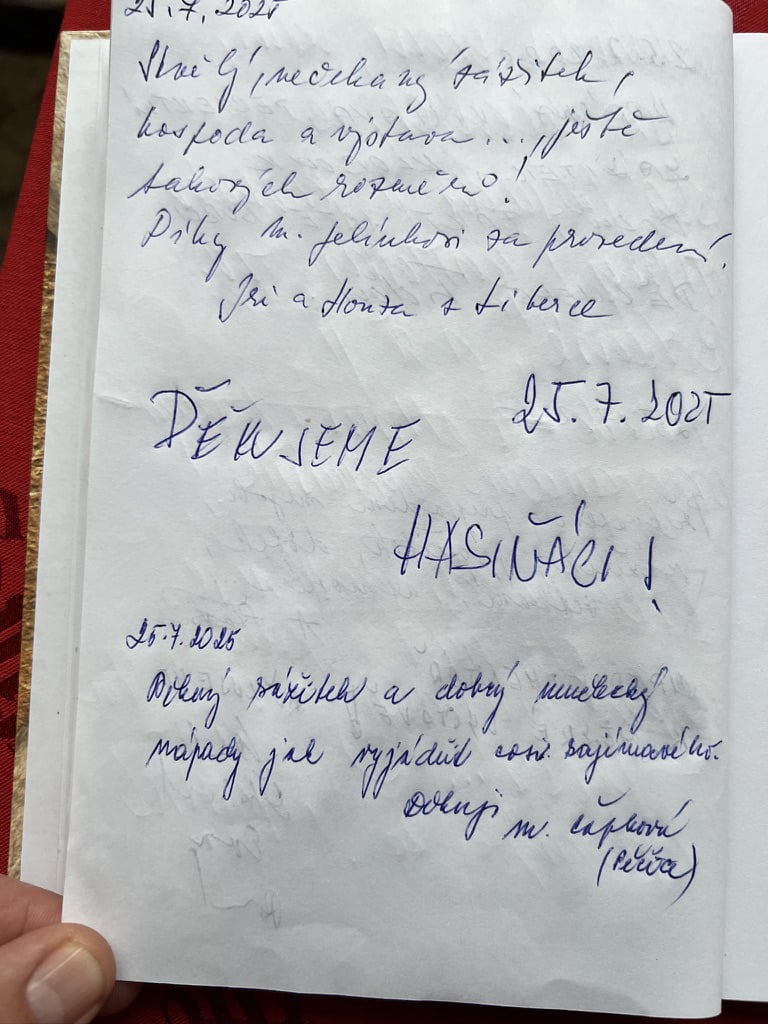 25.7.2025
Skvělý, nečekaný zážitek,
hospoda a výstava..., ještě
takových rozměrů!
Díky M. Jelínkovi za provedení.
Jiri a Honza z Liberce
DĚKUJEME 25.7.2025
HASIŇÁCI!
25.7.2025
Pěkný zážitek a dobrý umělecký
nápady jak vyjádřit cosi zajímavého.
Děkuji
M. Čápková